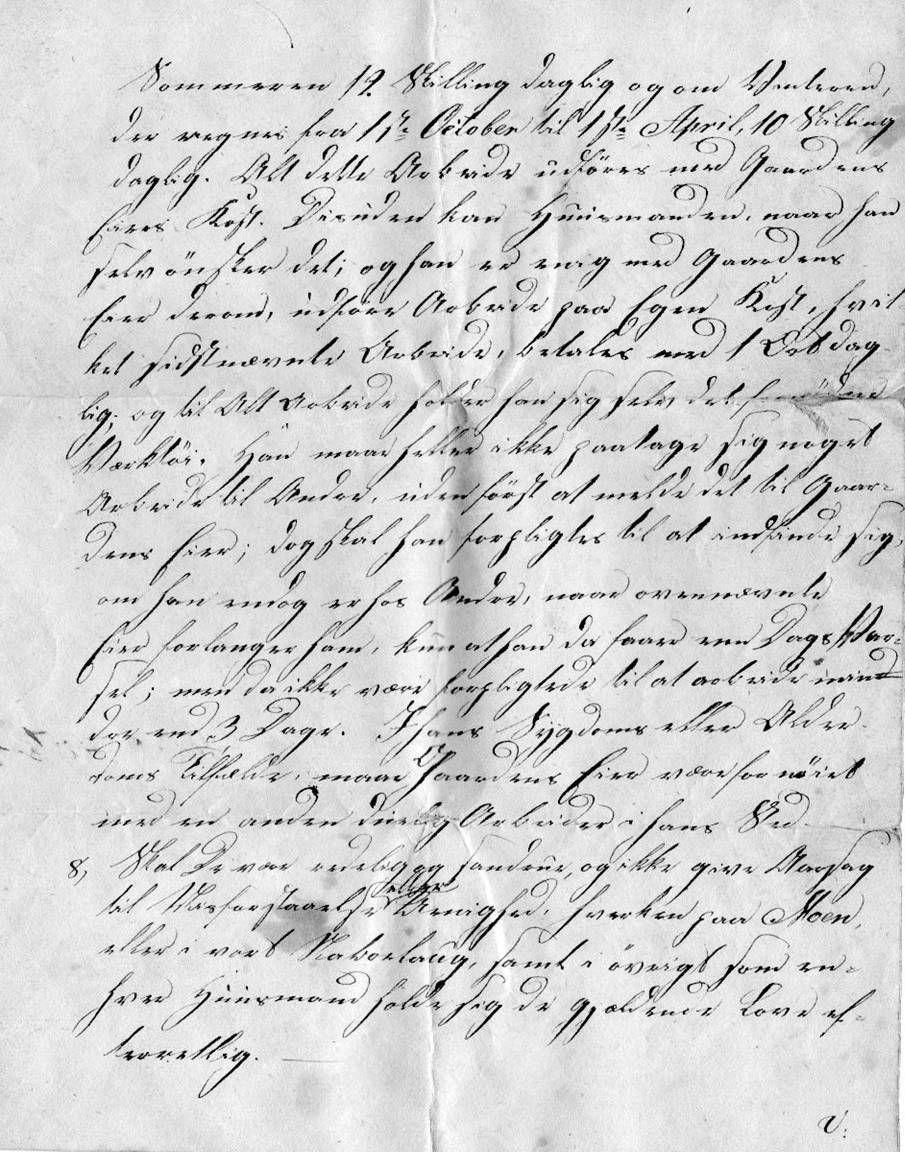 Sommeren 12 Skilling daglig og om Vinteren,
der regnes fra 1ste October til 1ste April, 10 Skilling
daglig. Alt dette Arbeide udføres med Gaardens
Eiers Kost. Desuden kan Huusmanden, naar han
selv önsker det, og han er enig med Gaardens
Eier derom, udføre Arbeide paa Egen Kost, hvil
ket sidstnævnte Arbeide, betales med 1 Ort dag
lig; og til Alt Arbeide holder han sig selv det fornödne
Værktöi. Han maae heller ikke paatage sig noget
Arbeide til Andre, uden först at melde det til Gaar-
dens Eier; dog skal han forpligtes til at indfinde sig,
om han endog er hos Andre, naar ovennævnte
Eier forlanger ham, kun at han da faaer een Dags Var-
sel; men da ikke være forpligtede til at arbeide min
dre end 3 Dage. I hans Sygdoms eller Alder
doms Tilfælde, maae Gaardens Eier være fornöiet
med en anden duelig Arbeider i hans Sted.
8, Skal De være ædelig og sandrue, og ikke give Aarsag
til Misforstaaelse eller Uenighed, hverken paa Moen,
eller i vort Naboelaug, samt i övrigt som en-
hver Huusmand holde sig de gjældende Love ef-
terrettelig.
V.